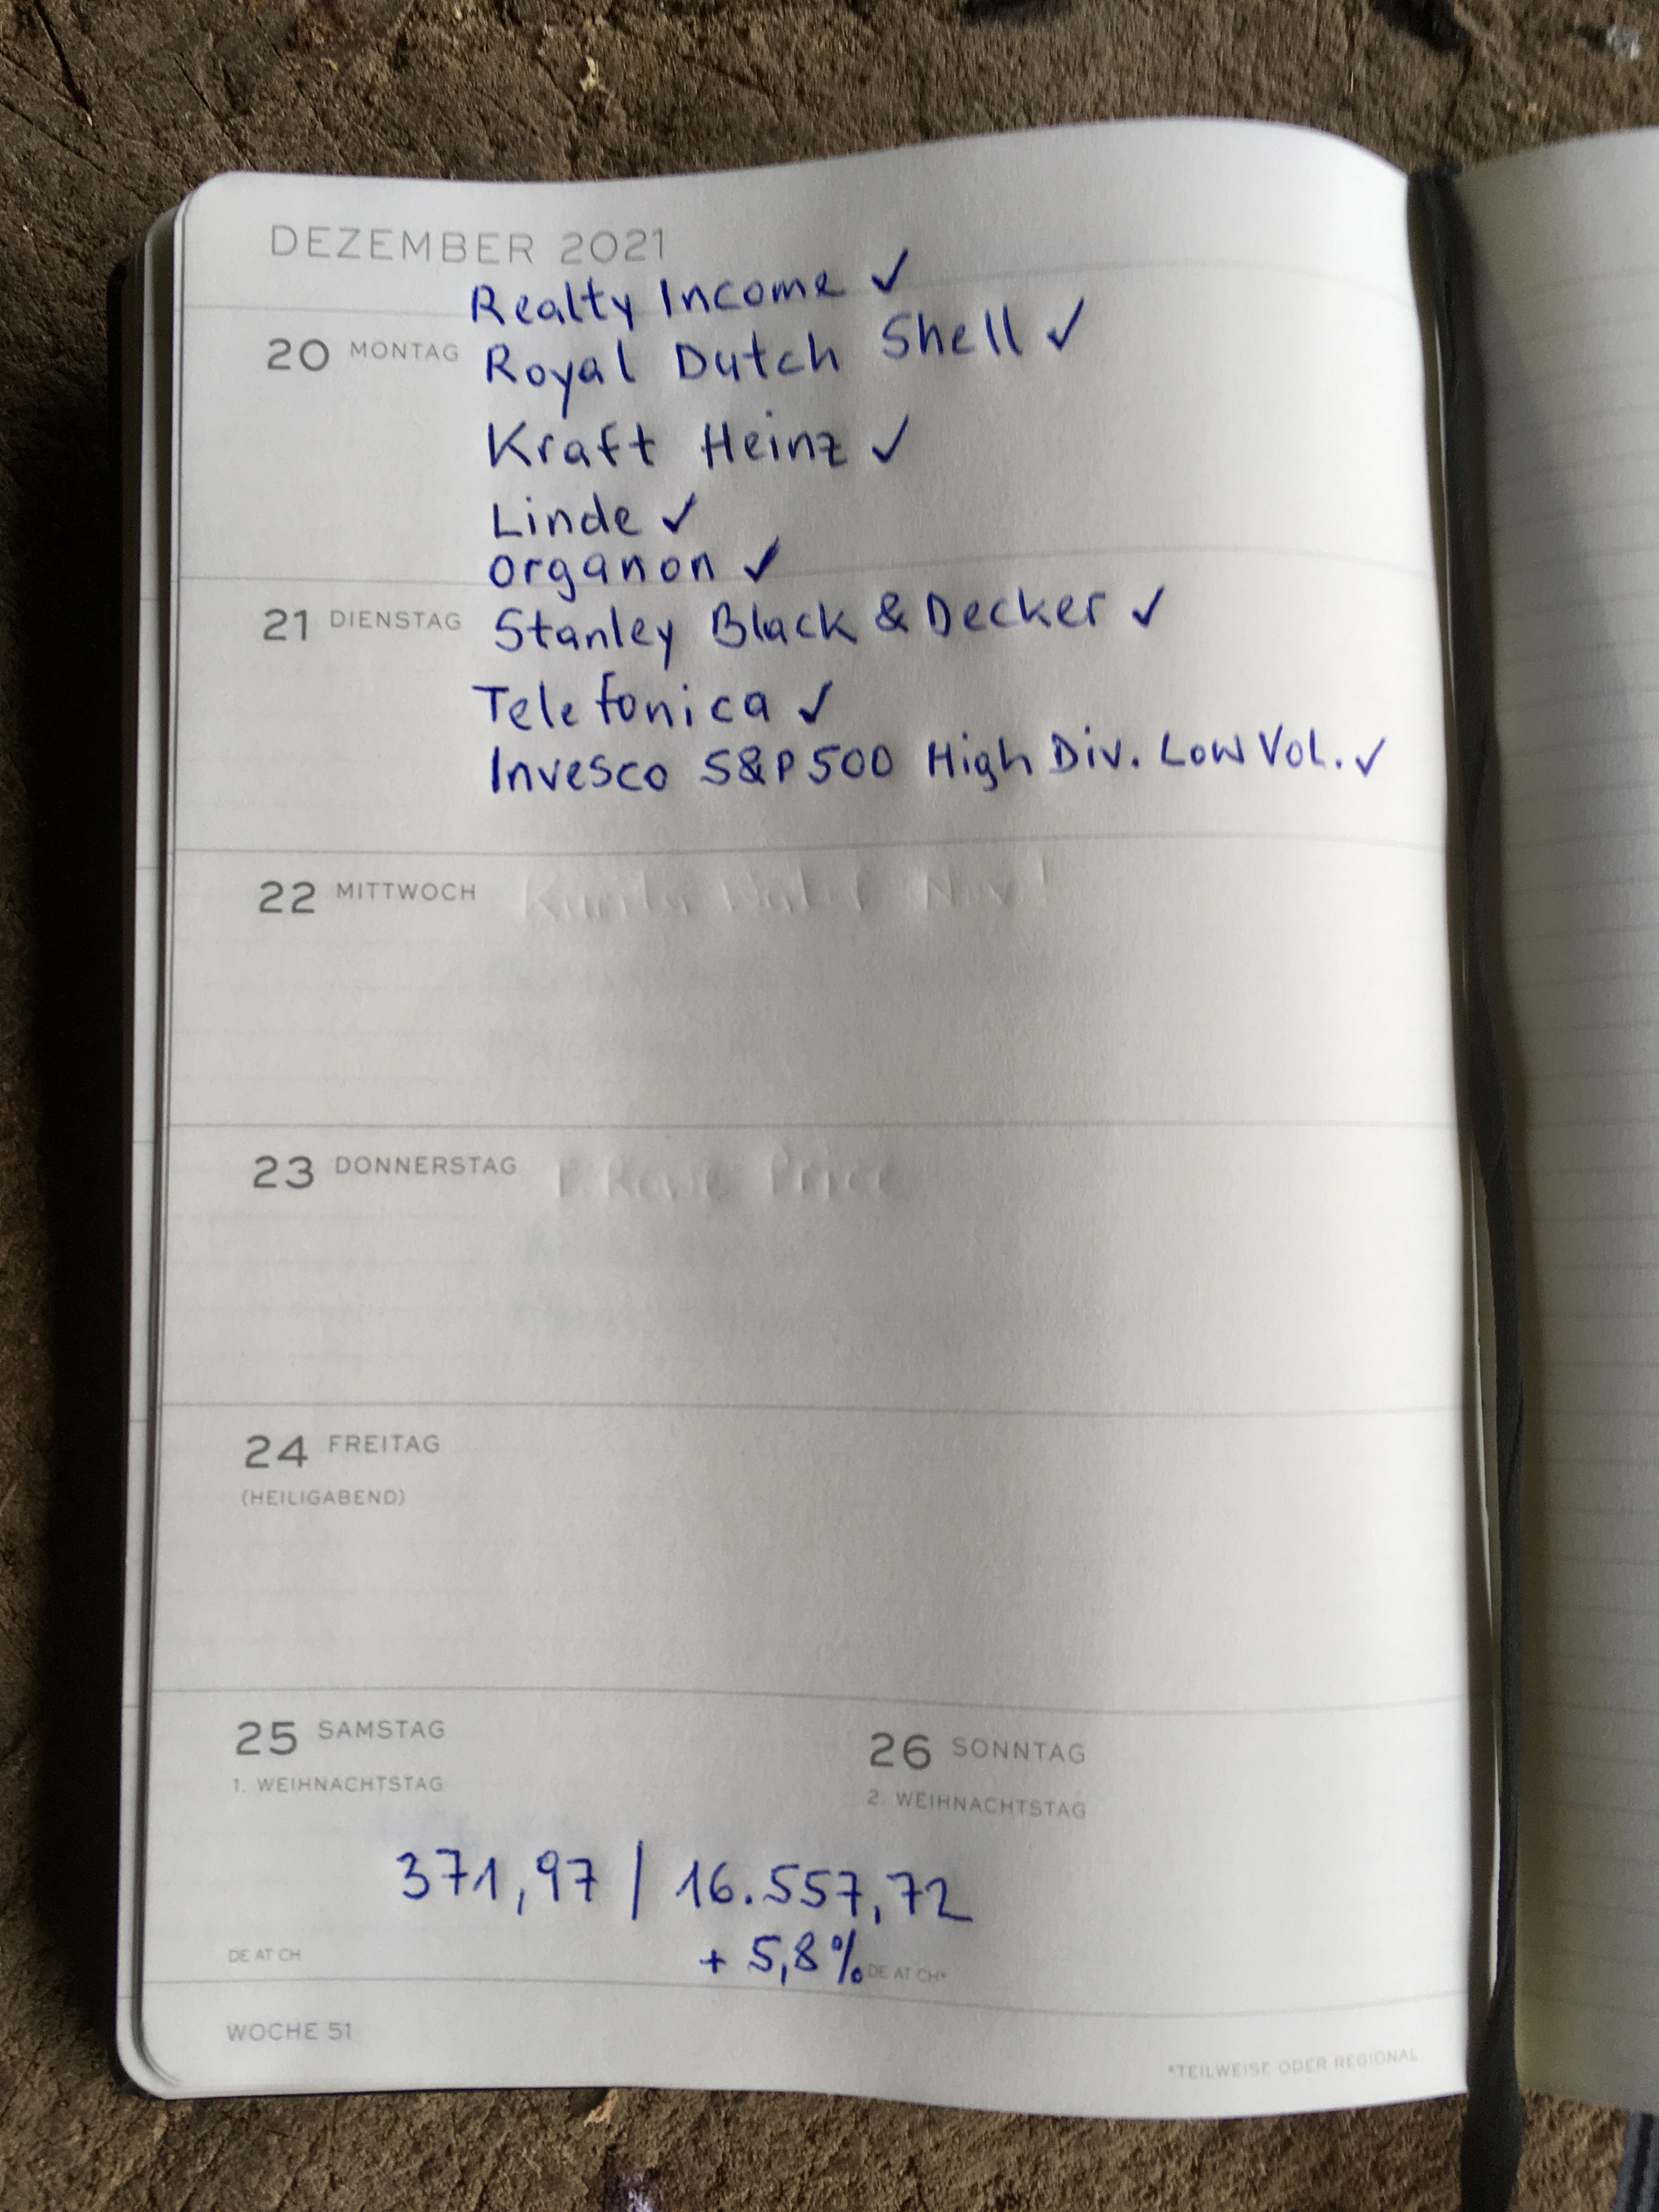 DEZEMBER 2021
Realty Income ✓
20 MONTAG Royal Dutch Shell ✓
Kraft Heinz ✓
Linde ✓
organon ✓
21 DIENSTAG Stanley Black & Decker ✓
Telefonica ✓
Invesco S&P500 High Div. Low Vol. ✓
22 MITTWOCH
23 DONNERSTAG
Price
24 FREITAG
(HEILIGABEND)
25 SAMSTAG
1. WEIHNACHTSTAG
26 SONNTAG
2. WEIHNACHTSTAG
371,97 / 16.557,72
+ 5,8%
DE AT CH
DE AT CH*
WOCHE 51
*TEILWEISE ODER REGIONAL